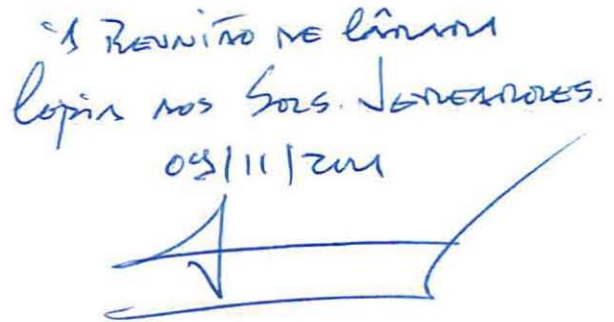 À REUNIÃO DE CÂMARA
Cópia aos Srs. VEREADORES.
09/11/2011